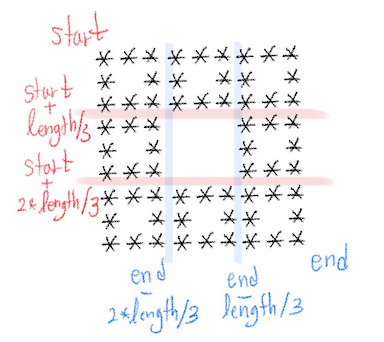 start
start
+
length/3
start
+
2*length/3
end
-
2*length/3
end
-
length/3
end